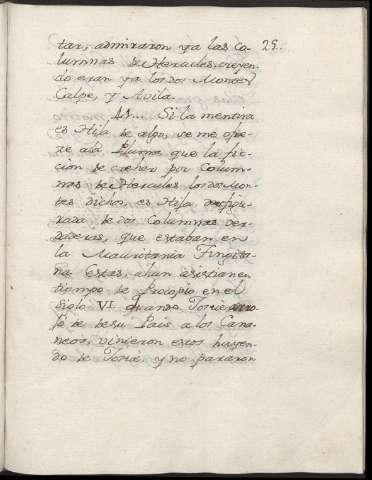 tar, admiraron ya las Co- 25..
lumnas de Hercules, creyen-
do eran ya los dos Montes
Calpe, y Avila.
41... Si la mentira
es Hija de algo, se me ofre-
ze a la Pluma que la fic-
cion de creher por Colum-
nas de Hercules los dos Mon-
tes dichos, es Hija desfigu-
rada de dos Columnas ver-
daderas, que estaban en
la Mauritania Tingita-
na estas, ahun existian en
tiempo de Procopio en el
Siglo VI. quando Josue arro-
jó de su Pais a los Cana-
neos, vinieron estos huyen-
do de Josue, y no pararon